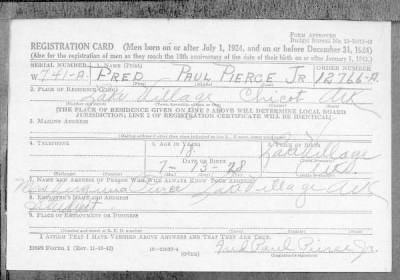 FORM APPROVED
REGISTRATION CARD (Men born on or after July 1, 1924, and on or before December 31, 1928)
(Also for the registration of men as they reach the 18th anniversary of the date of their birth on or after January 1, 1943.)
SERIAL NUMBER 1. NAME (Print) ORDER NUMBER
W 741-A FRED PAUL PIERCE JR 12766-A
2. PLACE OF RESIDENCE (Print)
Lake Village Chicot Ark
(THE PLACE OF RESIDENCE GIVEN ON LINE 2 ABOVE WILL DETERMINE LOCAL BOARD
JURISDICTION; LINE 2 OF REGISTRATION CERTIFICATE WILL BE IDENTICAL)
3. MAILING ADDRESS
4. TELEPHONE 5. AGE IN YEARS 6. PLACE OF BIRTH
18 Lake Village
DATE OF BIRTH
7-13-28 Ark
7. NAME AND ADDRESS OF PERSON WHO WILL ALWAYS KNOW YOUR ADDRESS
Mrs Virginia Pierce Lake Village Ark
8. EMPLOYER'S NAME AND ADDRESS
Student
9. PLACE OF EMPLOYMENT OR BUSINESS
I AFFIRM THAT I HAVE VERIFIED ABOVE ANSWERS AND THAT THEY ARE TRUE.
DSS FORM 1 (Rev. 11-16-42) (OVER) Fred Paul Pierce Jr.
(Registrant's signature)